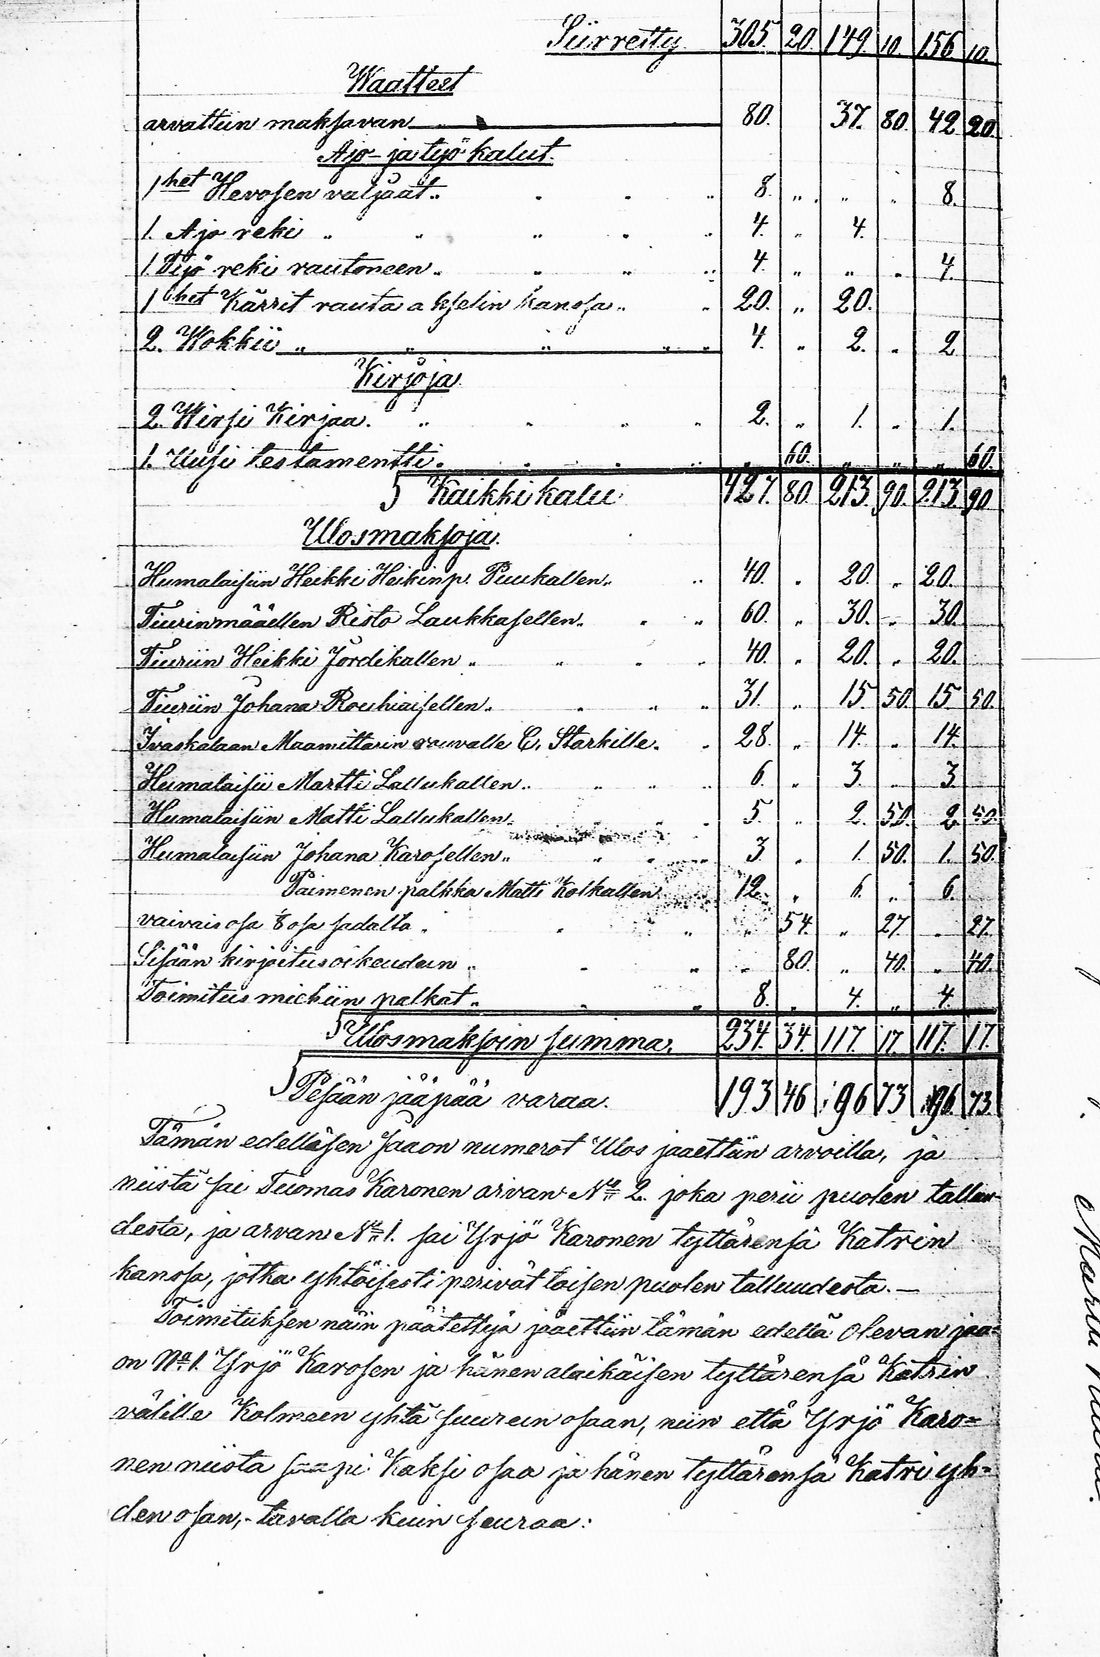 Siirretty 305. 20. 149. 10. 156 10.
Waatteet
arvattiin maksavan 80. 37. 80. 42 20.
Ajo- ja työ kalut.
1het Hevosen valjaat „ 8. „ „ „ 8.
1. Ajo reki „ „ „ „ „ 4. „ 4.
1. Työ reki rautoneen „ „ „ „ 4. „ „ „ 4.
1het Kärrit rauta akselin kanssa „ „ 20. „ 20.
2. Wokkii „ „ „ „ „ 4. „ 2. „ 2
Kirjoja
2. Wirsi Kirjaa. „ „ „ „ 2. „ 1. „ 1.
1. Uusi testamentti „ „ „ „ „ 60. „ „ „ 60.
Kaikki kalu 427. 80. 213. 90. 213. 90
Ulosmaksoja.
Humalaisiin Heikki Heikinp. Puukallen „ „ 40. „ 20. „ 20.
Tiurinmäällen Risto Laukkasellen „ „ „ 60. „ 30. „ 30.
Tiuriin Heikki Jördikallen „ „ „ „ 40. „ 20. „ 20.
Tiuriin Johana Rouhiaisellen „ „ „ „ 31. „ 15 50. 15 50.
Ivaskalaan Maamittarin rouvalle C. Starkille. „ 28. „ 14. „ 14.
Humalaisii Martti Lallukallen „ „ „ „ 6. „ 3. „ 3.
Humalaisiin Matti Lallukallen „ „ 5. „ 2. 50. 2. 50.
Humalaisiin Johana Karosellen „ „ „ „ 3. „ 1. 50. 1. 50.
Paimenen palkka Matti Kolkallen 12. „ 6. „ 6.
vaivais osa 8 osa sadalta „ „ „ „ „ 54. „ 27 „ 27.
Sisään kirjoitus oikeuteen „ „ „ „ 80. „ 40. „ 40.
Toimitus miehiin palkat „ „ „ 8. „ 4. „ 4.
Ulosmaksoin summa. 234. 34. 117. 17. 117. 17.
Pesään jääpää varaa. 193 46 96 73 96. 73
Tämän edelläsen jaaon numerot Ulos jaettiin arvoilla, ja
niistä sai Tuomas Karonen arvan No 2. joka perii puolen talluu-
desta, ja arvan No 1. sai Yrjö Karonen tyttärensä Katrin
kanssa, jotka yhtöisesti perivät toisen puolen talluudesta. —
Toimituksen näin päätettyä jäettiin tämän edellä olevan jaa=
on No 1. Yrjö Karosen ja hänen alaikäisen tyttärensä Katrin
välille Kolmeen yhtä suureen osaan, niin että Yrjö Karo=
nen niistä saapi Kaksi osaa ja hänen tyttärensä Katri yh=
den osan, - tavalla kuin seuraa: